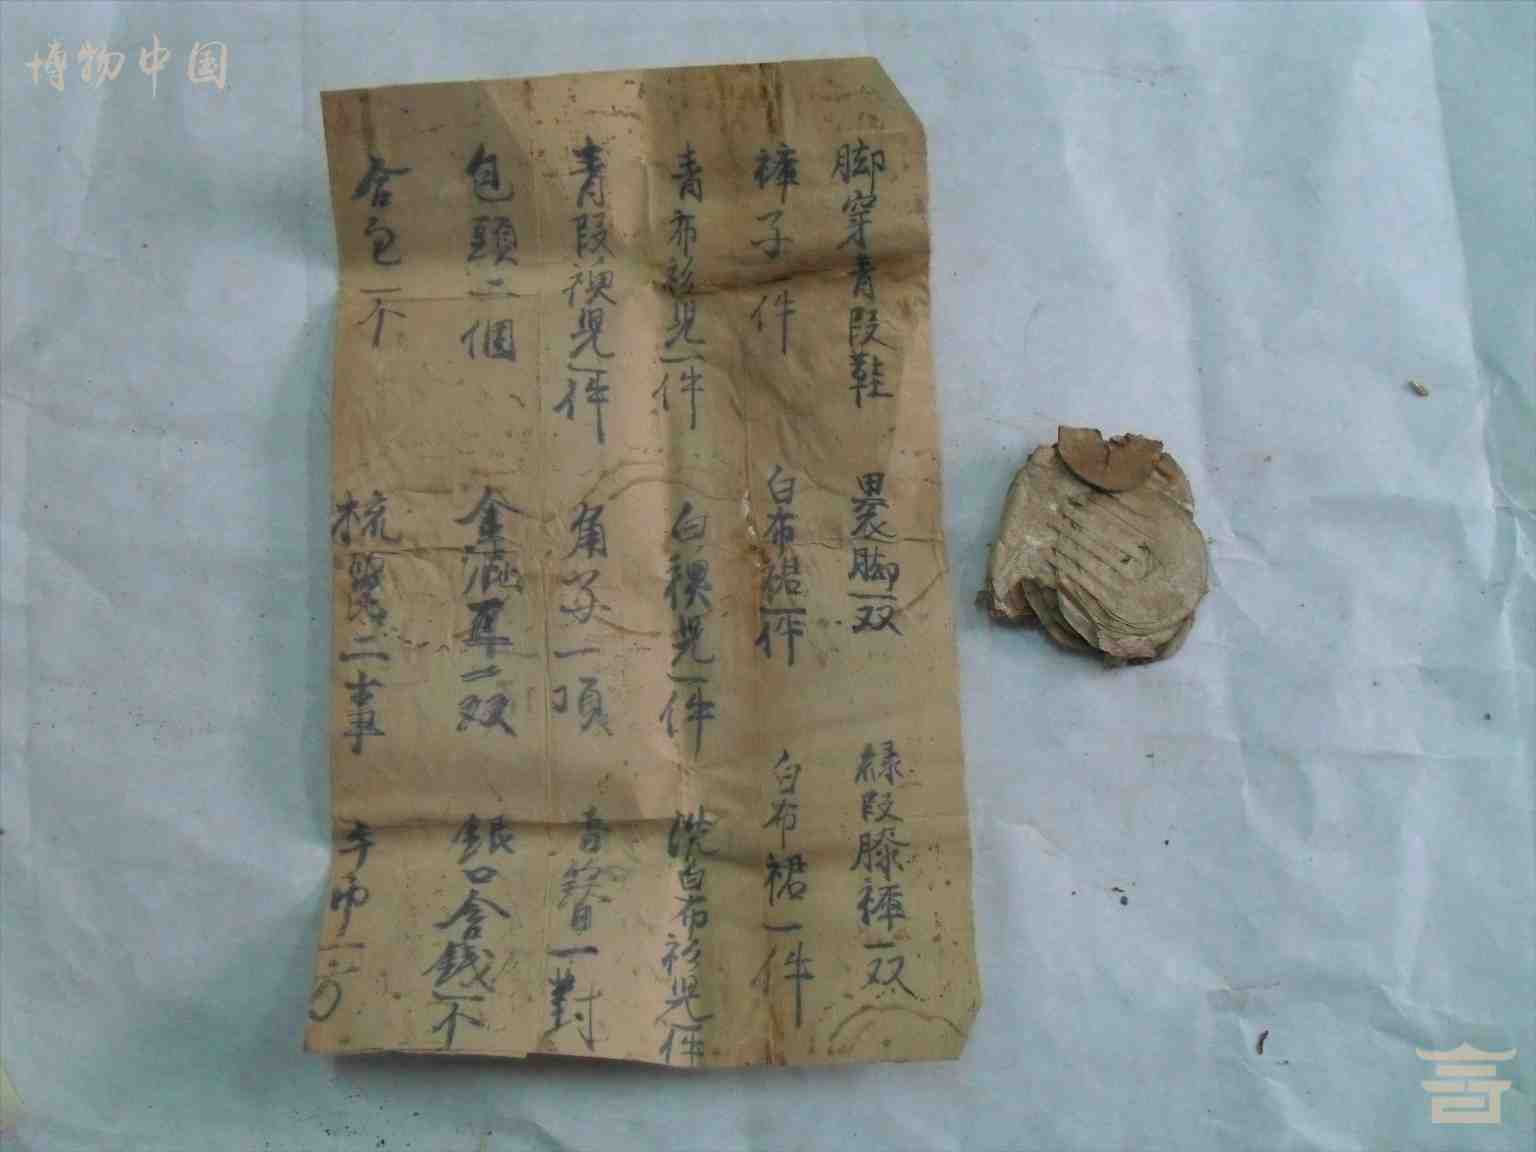 博物中国
脚穿青段鞋 裹脚一双 緑段膝裤一双
裤子一件 白布裙一件 白布裙一件
青布衫児一件 白襖児一件 洗白布衫児一件
青段襖児一件 角 一頂 青簪一對
包頭二個 金 耳二双 銀口含錢一个
合包一个 梳 二事 手巾一方